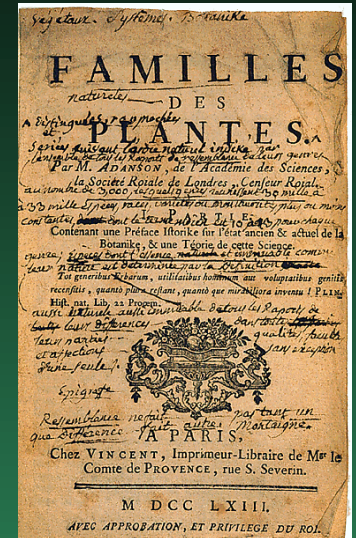 Végétaux. Systèmes. Botanike
FAMILLES
natureles
DES
distinguées, raprochées
PLANTES.
et
Séries suivant l'ordre naturel indiké par
l'ensemble de tous les Raports de ressemblance de leurs genres
Par M. ADANSON, de l'Académie des Sciences,
la Société Roïale de Londres, Censeur Roïal.
au nombre de 3,000 lesquels genres 30 mille à
33 mille Espèces, races, variétés ou
constantes, pour chaque
PARTIE.
Contenant une Préface Istorike sur l'état ancien & actuel de la
Botanike, & une Téorie de cette Science.
genre,
nature est déterminée par la
Tot generibus Herbarum, utilitatibus hominum aut voluptatibus genitis,
recensitis, quanto plura restant, quanto que mirabiliora inventu ! PLIN.
Hist. nat. Lib, 22 Proœm.
aussi naturele aussi de tous les Raports de
leurs différences dans toutes
leurs parties qualités, facultés
et afections sans exception
d'une seule !
Epigrafe
Ressemblance ne fait pas tant un
que Différence fait autre. Montaigne.
A PARIS,
Chez VINCENT, Imprimeur-Libraire de Mgr le
Comte de PROVENCE, rue S. Severin.
M DCC LXIII.
AVEC APPROBATION, ET PRIVILEGE DU ROI.